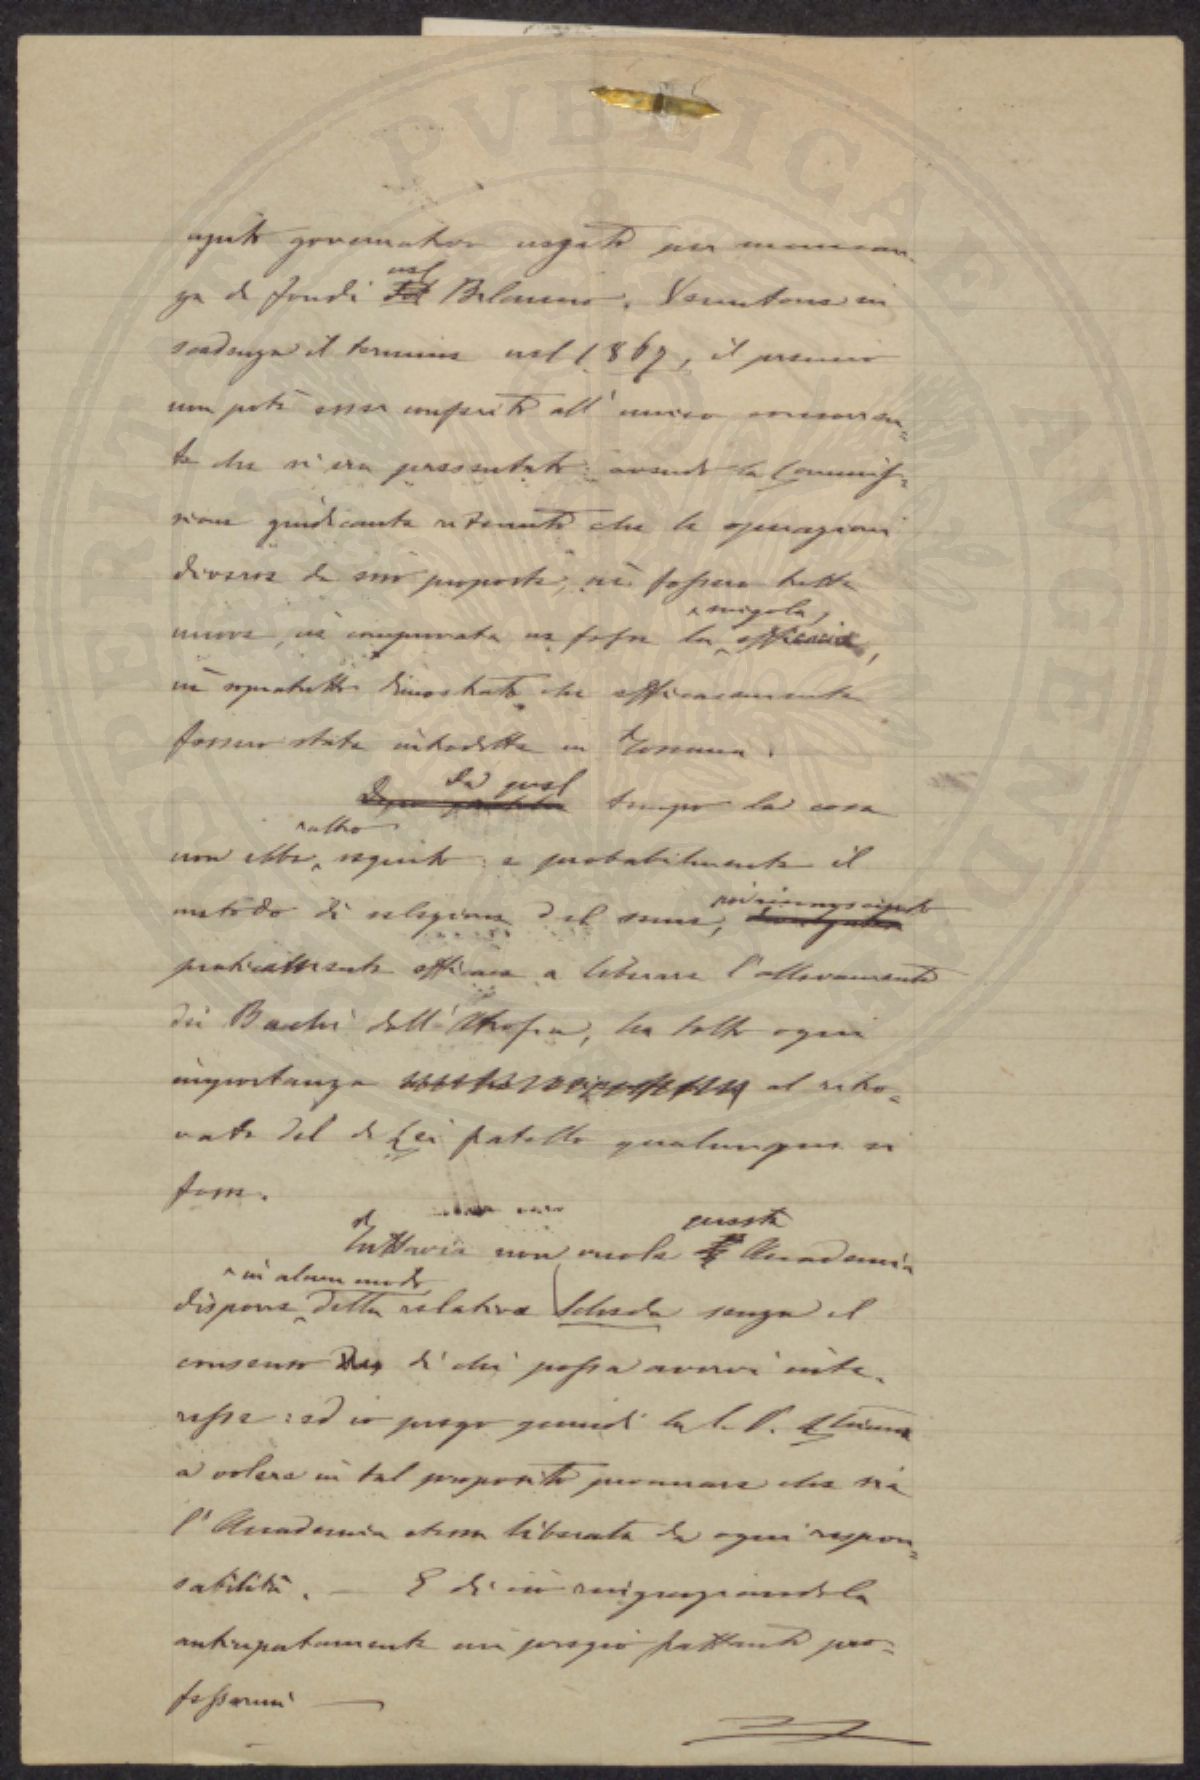 ajuto governativo negato per mancan-
za di fondi nel Bilancio. Venutone in
scadenza il termine nel 1867, il premio
non potè esser conferito all'unico concorren-
te che si era presentato: avendo la Commis-
sione giudicante ritenuto che le operazioni
diverse da esso proposte, nè fossero tutte
nuove, nè comprovata ne fosse la singola efficacia,
nè sopratutto dimostrato che efficacemente
fossero state introdotte in Toscana.
Da quel tempo la cosa
non ebbe altro seguito: e probabilmente il
metodo di selezione del seme, riconosciuto
praticamente efficace a liberare l'allevamento
dei Bachi dall'Atrofia, ha tolto ogni
importanza al ritro-
vato del di Lei fratello qualunque si
fosse.
Tuttavia non vuole questa Accademia
disporre in alcun modo della relativa Scheda senza il
consenso di chi possa avervi inte-
resse: ed io prego quindi la S. V. Ill.ma
a volere in tal proposito procurare che sia
l'Accademia stessa liberata da ogni respon-
sabilità. — E di ciò ringraziandola
anticipatamente mi pregio frattanto pro-
fessarmi —
PVBLICAE
AVGENDAE